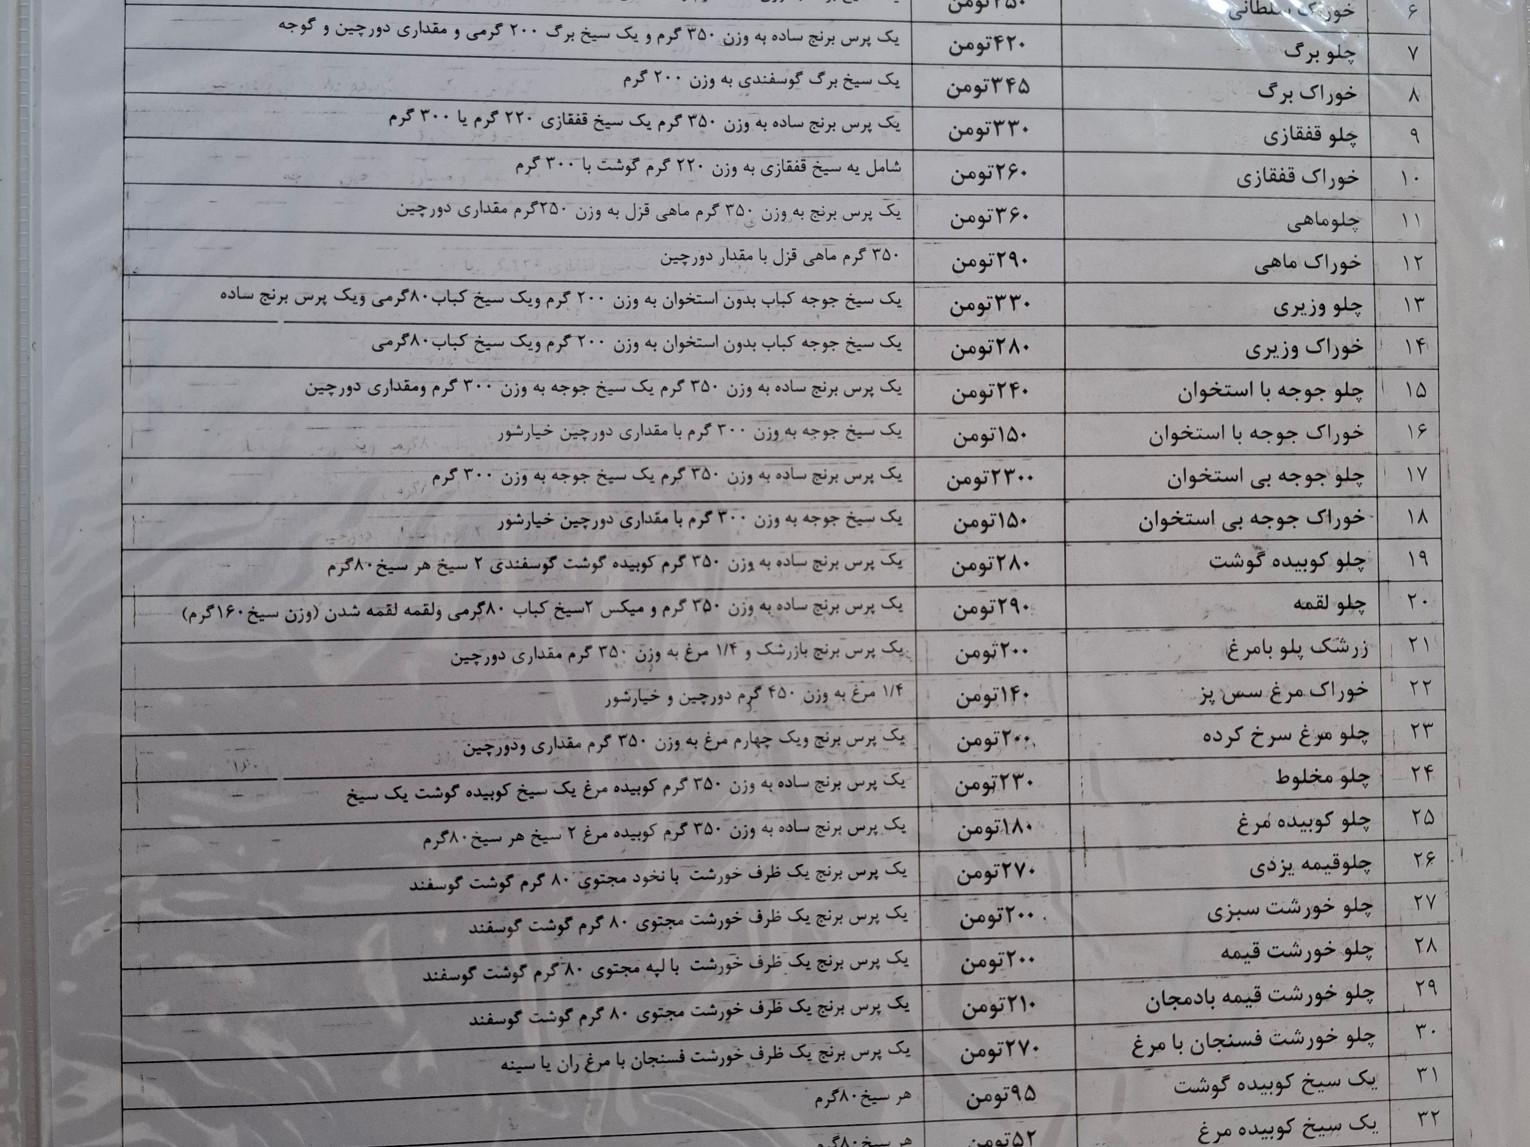 ۶ خوراک سلطانی ۲۵۰تومن
۷ چلو برگ ۴۲۰تومن یک پرس برنج ساده به وزن ۳۵۰ گرم و یک سیخ برگ ۲۰۰ گرمی و مقداری دورچین و گوجه
۸ خوراک برگ ۳۴۵تومن یک سیخ برگ گوسفندی به وزن ۲۰۰ گرم
۹ چلو قفقازی ۳۳۰تومن یک پرس برنج ساده به وزن ۳۵۰ گرم یک سیخ قفقازی ۲۲۰ گرم یا ۳۰۰ گرم
۱۰ خوراک قفقازی ۲۶۰تومن شامل یه سیخ قفقازی به وزن ۲۲۰ گرم گوشت با ۳۰۰ گرم
۱۱ چلوماهی ۳۶۰تومن یک پرس برنج به وزن ۳۵۰ گرم ماهی قزل به وزن ۲۵۰گرم مقداری دورچین
۱۲ خوراک ماهی ۲۹۰تومن ۳۵۰ گرم ماهی قزل با مقدار دورچین
۱۳ چلو وزیری ۳۳۰تومن یک سیخ جوجه کباب بدون استخوان به وزن ۲۰۰ گرم ویک سیخ کباب۸۰گرمی ویک پرس برنج ساده
۱۴ خوراک وزیری ۲۸۰تومن یک سیخ جوجه کباب بدون استخوان به وزن ۲۰۰ گرم ویک سیخ کباب۸۰گرمی
۱۵ چلو جوجه با استخوان ۲۴۰تومن یک پرس برنج ساده به وزن ۳۵۰ گرم یک سیخ جوجه به وزن ۳۰۰ گرم ومقداری دورچین
۱۶ خوراک جوجه با استخوان ۱۵۰تومن یک سیخ جوجه به وزن ۳۰۰ گرم با مقداری دورچین خیارشور
۱۷ چلو جوجه بی استخوان ۲۳۰۰تومن یک پرس برنج ساده به وزن ۳۵۰ گرم یک سیخ جوجه به وزن ۳۰۰ گرم
۱۸ خوراک جوجه بی استخوان ۱۵۰تومن یک سیخ جوجه به وزن ۳۰۰ گرم با مقداری دورچین خیارشور
۱۹ چلو کوبیده گوشت ۲۸۰تومن یک پرس برنج ساده به وزن ۳۵۰ گرم کوبیده گوشت گوسفندی ۲ سیخ هر سیخ۸۰گرم
۲۰ چلو لقمه ۲۹۰تومن یک پرس برنج ساده به وزن ۳۵۰ گرم و میکس ۲سیخ کباب ۸۰گرمی ولقمه لقمه شدن (وزن سیخ۱۶۰گرم)
۲۱ زرشک پلو بامرغ ۲۰۰تومن یک پرس برنج بازرشک و ۱/۴ مرغ به وزن ۳۵۰ گرم مقداری دورچین
۲۲ خوراک مرغ سس پز ۱۴۰تومن ۱/۴ مرغ به وزن ۴۵۰ گرم دورچین و خیارشور
۲۳ چلو مرغ سرخ کرده ۲۰۰تومن یک پرس برنج ویک چهارم مرغ به وزن ۳۵۰ گرم مقداری ودورچین
۲۴ چلو مخلوط ۲۳۰تومن یک پرس برنج ساده به وزن ۳۵۰ گرم کوبیده مرغ یک سیخ کوبیده گوشت یک سیخ
۲۵ چلو کوبیده مرغ ۱۸۰تومن یک پرس برنج ساده به وزن ۳۵۰ گرم کوبیده مرغ ۲ سیخ هر سیخ۸۰گرم
۲۶ چلوقیمه یزدی ۲۷۰تومن یک پرس برنج یک ظرف خورشت با نخود مجتوی ۸۰ گرم گوشت گوسفند
۲۷ چلو خورشت سبزی ۲۰۰تومن یک پرس برنج یک ظرف خورشت مجتوی ۸۰ گرم گوشت گوسفند
۲۸ چلو خورشت قیمه ۲۰۰تومن یک پرس برنج یک ظرف خورشت با لپه مجتوی ۸۰ گرم گوشت گوسفند
۲۹ چلو خورشت قیمه بادمجان ۲۱۰تومن یک پرس برنج یک ظرف خورشت مجتوی ۸۰ گرم گوشت گوسفند
۳۰ چلو خورشت فسنجان با مرغ ۲۷۰تومن یک پرس برنج یک ظرف خورشت فسنجان با مرغ ران یا سینه
۳۱ یک سیخ کوبیده گوشت ۹۵تومن هر سیخ۸۰گرم
۳۲ یک سیخ کوبیده مرغ ۵۲تومن هر سیخ۸۰گرم